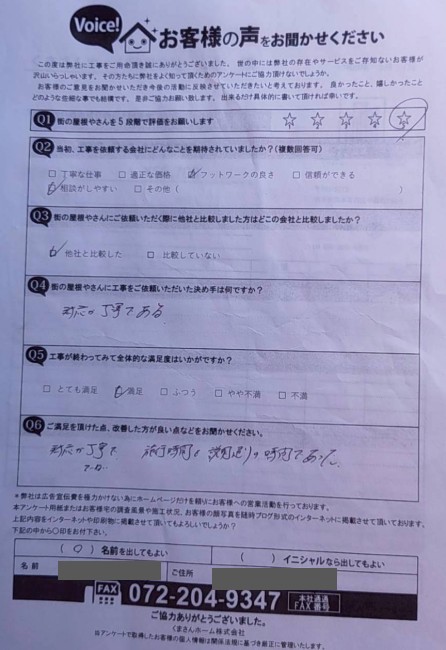 Voice! お客様の声をお聞かせください
この度は弊社に工事をご用命頂き誠にありがとうございました。世の中には弊社の存在やサービスをご存知ないお客様が
沢山いらっしゃいます。その方たちに弊社をよく知って頂くためのアンケートにご協力頂けないでしょうか。
お客様のご意見をお聞かせいただき今後の活動に反映させていただきたいと考えております。良かったこと、嬉しかったこと
どのような些細な事でも結構です。是非ご協力お願い致します。出来るだけ具体的に書いて頂ければ幸いです。
Q1 街の屋根やさんを5段階で評価をお願いします ☆ ☆ ☆ ☆ ☆
Q2 当初、工事を依頼する会社にどんなことを期待されていましたか?(複数回答可)
□ 丁寧な仕事 □ 適正な価格 ☑ フットワークの良さ □ 信頼ができる
☑ 相談がしやすい □ その他( )
Q3 街の屋根やさんにご依頼いただく際に他社と比較しました方はどこの会社と比較しましたか?
☑ 他社と比較した □ 比較していない
Q4 街の屋根やさんに工事をご依頼いただいた決め手は何ですか?
対応が丁寧である
Q5 工事が終わってみて全体的な満足度はいかがですか?
□ とても満足 ☑ 満足 □ ふつう □ やや不満 □ 不満
Q6 ご満足を頂けた点、改善した方が良い点などをお聞かせください。
対応が丁寧で 施行時間も 説明通りの時間であった
*弊社は広告宣伝費を極力かけない為にホームページだけを頼りにお客様への営業活動を行っております。
本アンケート用紙またはお客様宅の調査風景や施工状況、お客様の顔写真を随時ブログ形式のインターネットに掲載させて頂いております。
上記内容をインターネットや印刷物に掲載させて頂いてもよろしいでしょうか?
下記の中から〇印をお付下さい。
(〇)名前を出してもよい ( )イニシャルなら出してもよい
名前 ご住所
FAX 072-204-9347 本社通過 FAX番号
ご協力ありがとうございました。
くまさんホーム株式会社
当アンケートで取得したお客様の個人情報は関係法規に基づき厳正に管理いたします。